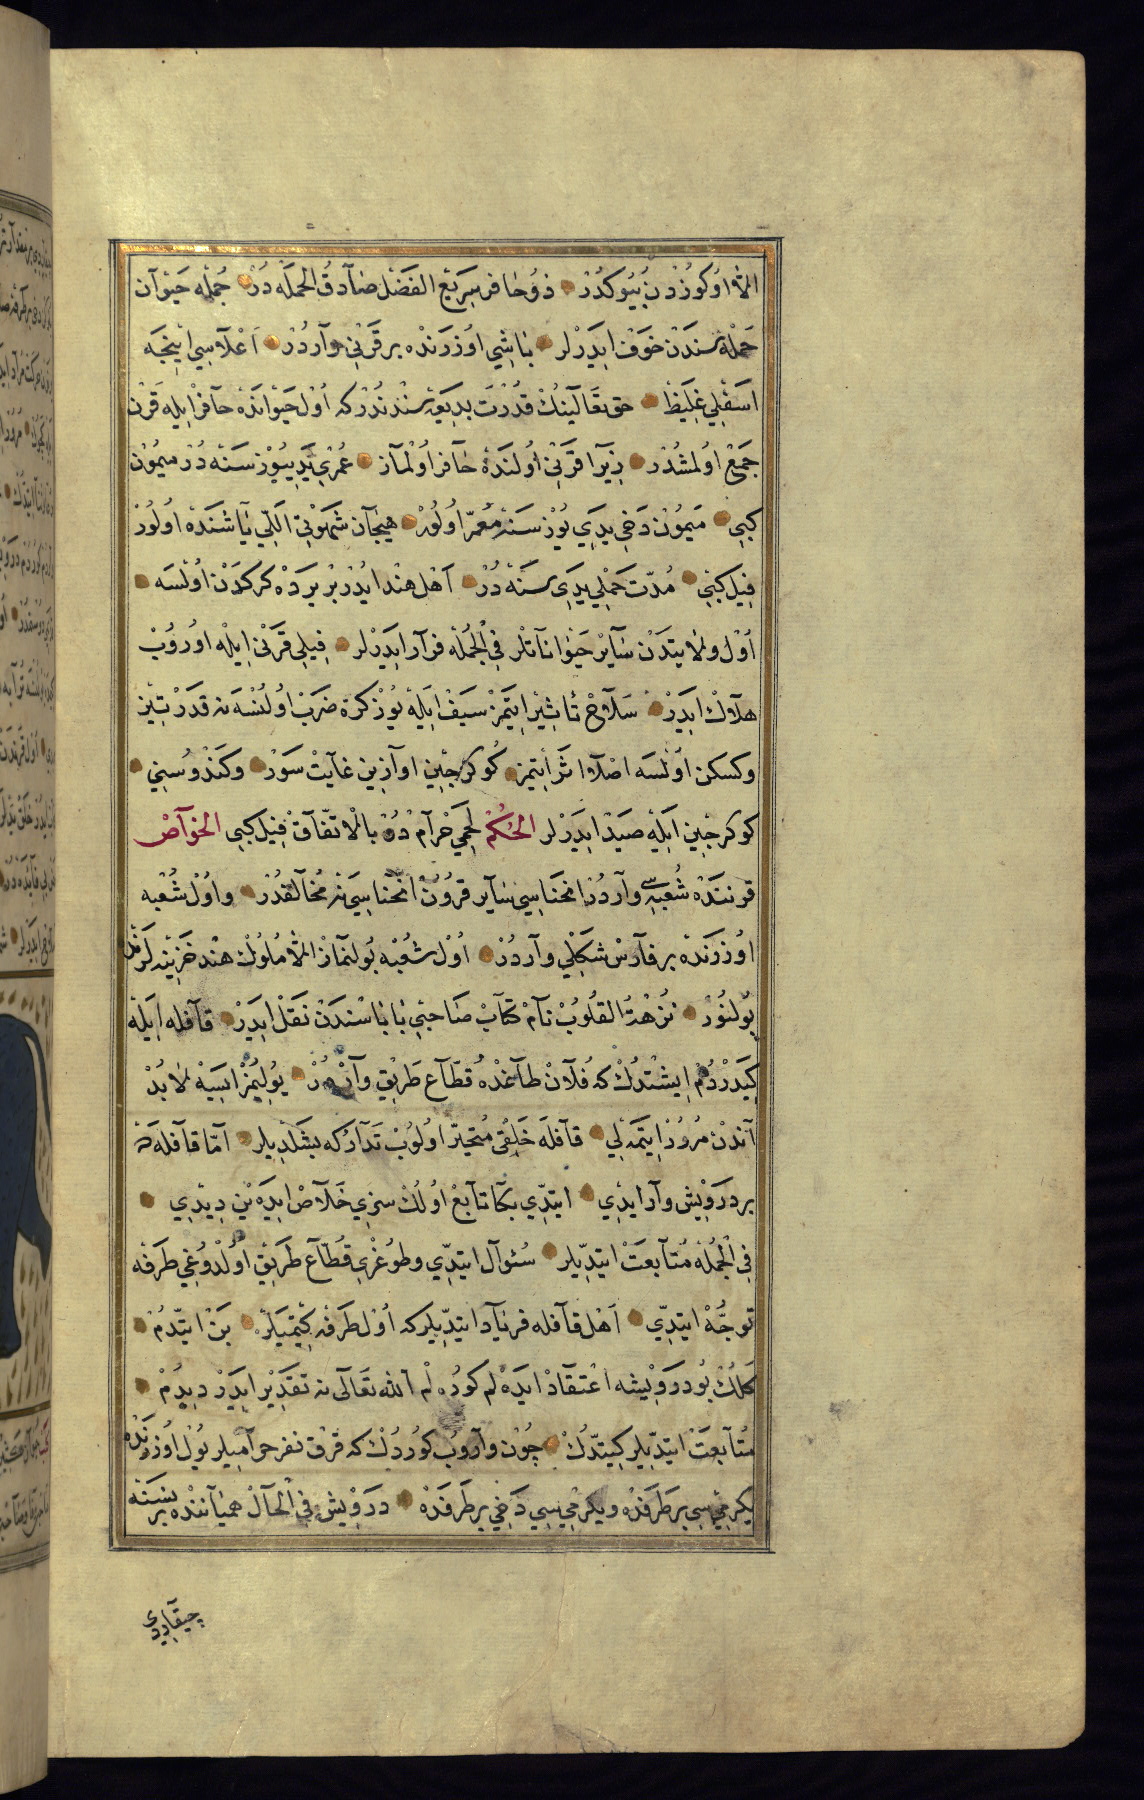 الّا اوكوزدن بيوكدر ذو حافر سريع الفضل صادق الحمله در جمله حيوان
حمله سندن خوف ايدرلر باشى اوزرنده بر قرنى واردر اعلاسى اينجه
اسفلى غليظ حق تعالينك قدرت بديعه سندندر كه اول حيوانده حافر ايله قرن
جمع اولمشدر زيرا قرنى اولنده حافر اولماز عمرى يدييوز سنه در ميمون
كبى ميمون دخى يدى يوز سنه معمر اولور هيجان شهوتى اللى ياشنده اولور
فيل كبى مدت حملى يدى سنه در اهل هند ايدر بر يرده كركدن اولسه
اول ولايتدن ساير حيواناتلر فى الجمله فرار ايدرلر فيلى قرنى ايله اوروب
هلاك ايدر سلاح تاثير ايتمز سيف ايله يوز كره ضرب اولنسه نه قدر تيز
وكسكن اولسه اصلا اثر ايتمز كوكرجين اوازين غايت سور وكندوسنى
كوكرجين ايله صيد ايدرلر الحكم لحمى حرام در بالاتفاق فيل كبى الخواص
قرننده شعبه سى واردر انحناسى ساير قرون انحناسى نه مخالفدر واول شعبه
اوزرنده بر فارس شكلى واردر اول شعبه بولنماز الّا ملوك هند خزينه لرنده
بولنور نزهة القلوب نام كتاب صاحبى باباسندن نقل ايدر قافله ايله
كيدردم ايشتدك كه فلان طاغده قطاع طريق واردر يوليمز ايسه لابد
آندن مرور ايتمه لى قافله خلقى متحير اولوب تداركه بشلديلر امّا قافله ده
بر درويش وار ايدى ايتدى بكا تابع اولك سزى خلاص ايده ين ديدى
فى الجمله متابعت ايتديلر سئوال ايتدى وطوغرى قطاع طريق اولدوغى طرفه
توجّه ايتدى اهل قافله فرياد ايتديلر كه اول طرفه كيتميه لر بن ايتدم
كلك بو درويشه اعتقاد ايده لم كوره لم الله تعالى نه تقدير ايدر ديدم
متابعت ايتديلر كيتدك چون واروب كوردك كه قرق نفر حراميلر يول اوزرنده
يكرميسى بر طرفده ويكرميسى دخى بر طرفده درويش فى الحال هميانندن بر نسنه
چيقاردى